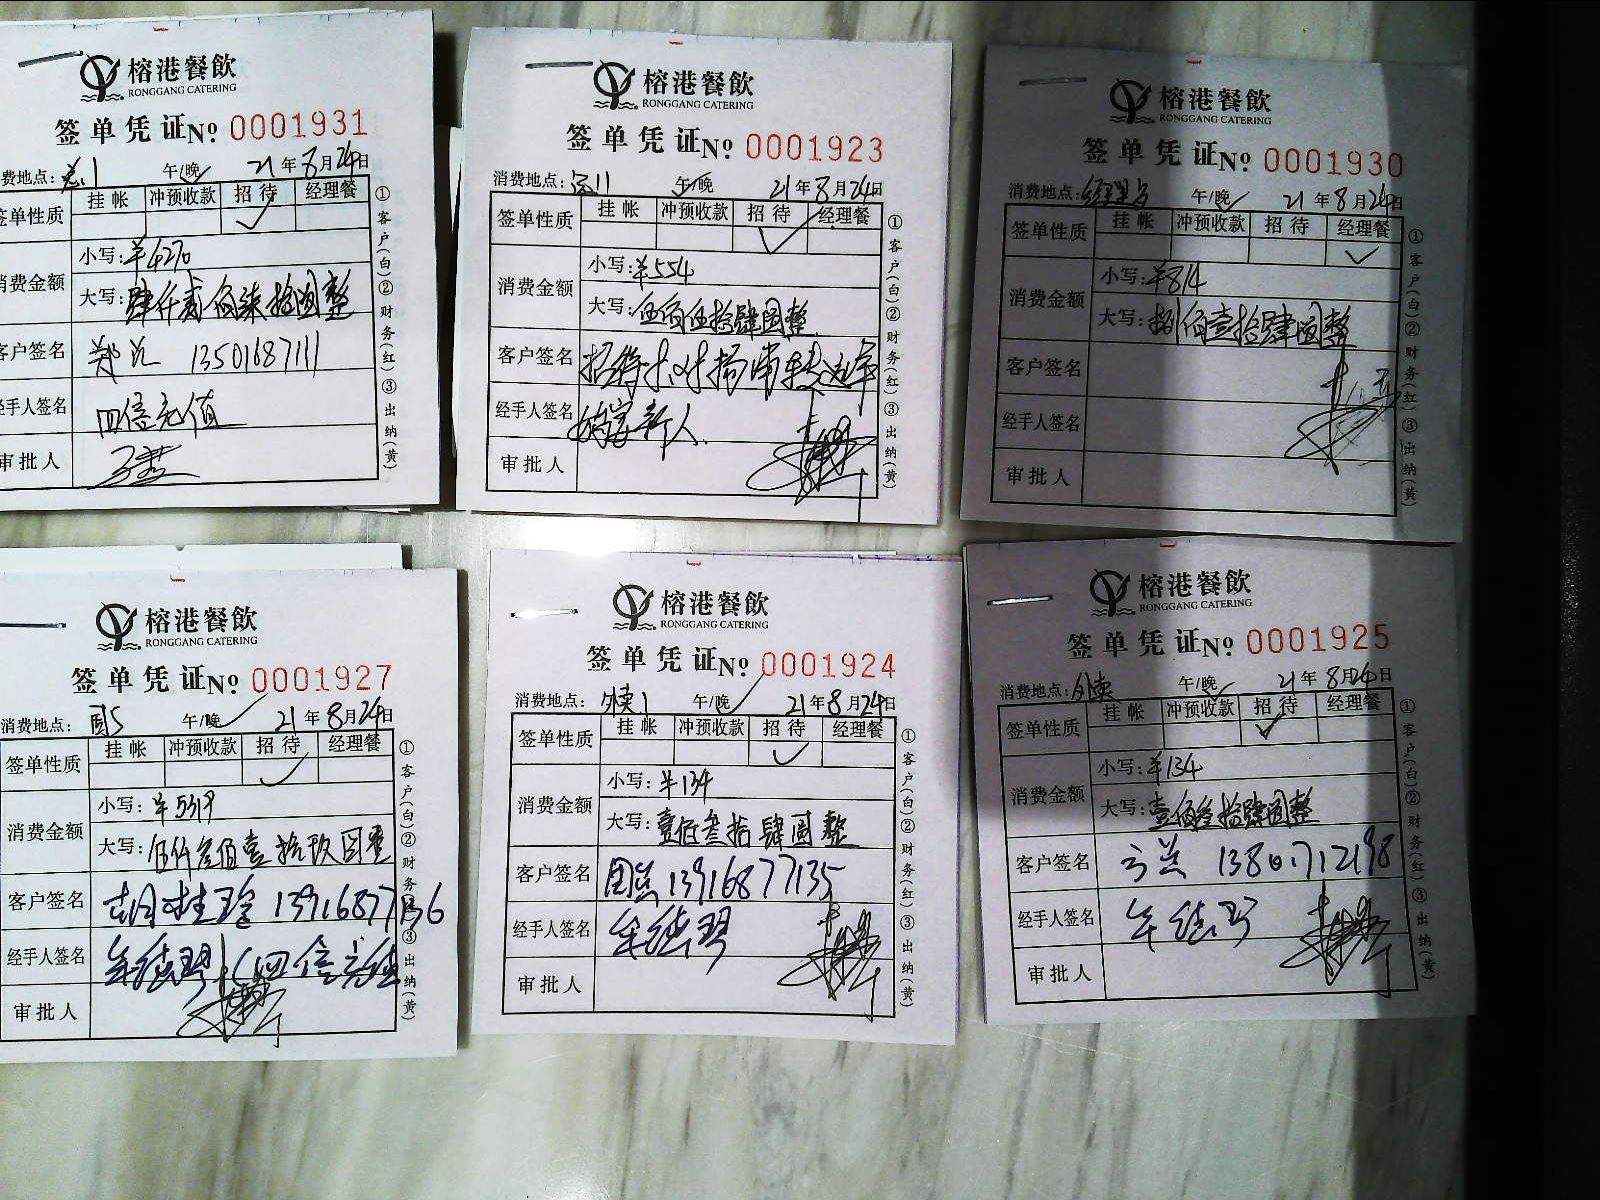 榕港餐飲
RONGGANG CATERING
签单凭证№ 0001931
费地点: 午/晚 21年8月24日
签单性质 挂帐 冲预收款 招待 经理餐
消费金额 小写: ¥4270
大写: 肆仟贰佰柒拾圆整
客户签名 13501687111
经手人签名 四信元值
审批人
①客户(白)②财务(红)③出纳(黄)
榕港餐飲
RONGGANG CATERING
签单凭证№ 0001923
消费地点: 午/晚 21年8月24日
签单性质 挂帐 冲预收款 招待 经理餐
消费金额 小写: ¥554
大写: 伍佰伍拾肆圆整
客户签名 招待
经手人签名 新人
审批人
①客户(白)②财务(红)③出纳(黄)
榕港餐飲
RONGGANG CATERING
签单凭证№ 0001930
消费地点: 午/晚 21年8月24日
签单性质 挂帐 冲预收款 招待 经理餐
消费金额 小写: ¥814
大写: 捌佰壹拾肆圆整
客户签名
经手人签名
审批人
①客户(白)②财务(红)③出纳(黄)
榕港餐飲
RONGGANG CATERING
签单凭证№ 0001927
消费地点: 国5 午/晚 21年8月24日
签单性质 挂帐 冲预收款 招待 经理餐
消费金额 小写: ¥5319
大写: 伍仟叁佰壹拾玖圆整
客户签名 胡桂
经手人签名 牟德琴 (四信元值
审批人
①客户(白)②财务(红)③出纳(黄)
榕港餐飲
RONGGANG CATERING
签单凭证№ 0001924
消费地点: 外卖1 午/晚 21年8月24日
签单性质 挂帐 冲预收款 招待 经理餐
消费金额 小写: ¥134
大写: 壹佰叁拾肆圆整
客户签名 13916877135
经手人签名 牟德琴
审批人
①客户(白)②财务(红)③出纳(黄)
榕港餐飲
RONGGANG CATERING
签单凭证№ 0001925
消费地点: 外卖 午/晚 21年8月24日
签单性质 挂帐 冲预收款 招待 经理餐
消费金额 小写: ¥134
大写: 壹佰叁拾肆圆整
客户签名 13801712198
经手人签名 牟德琴
审批人
①客户(白)②财务(红)③出纳(黄)